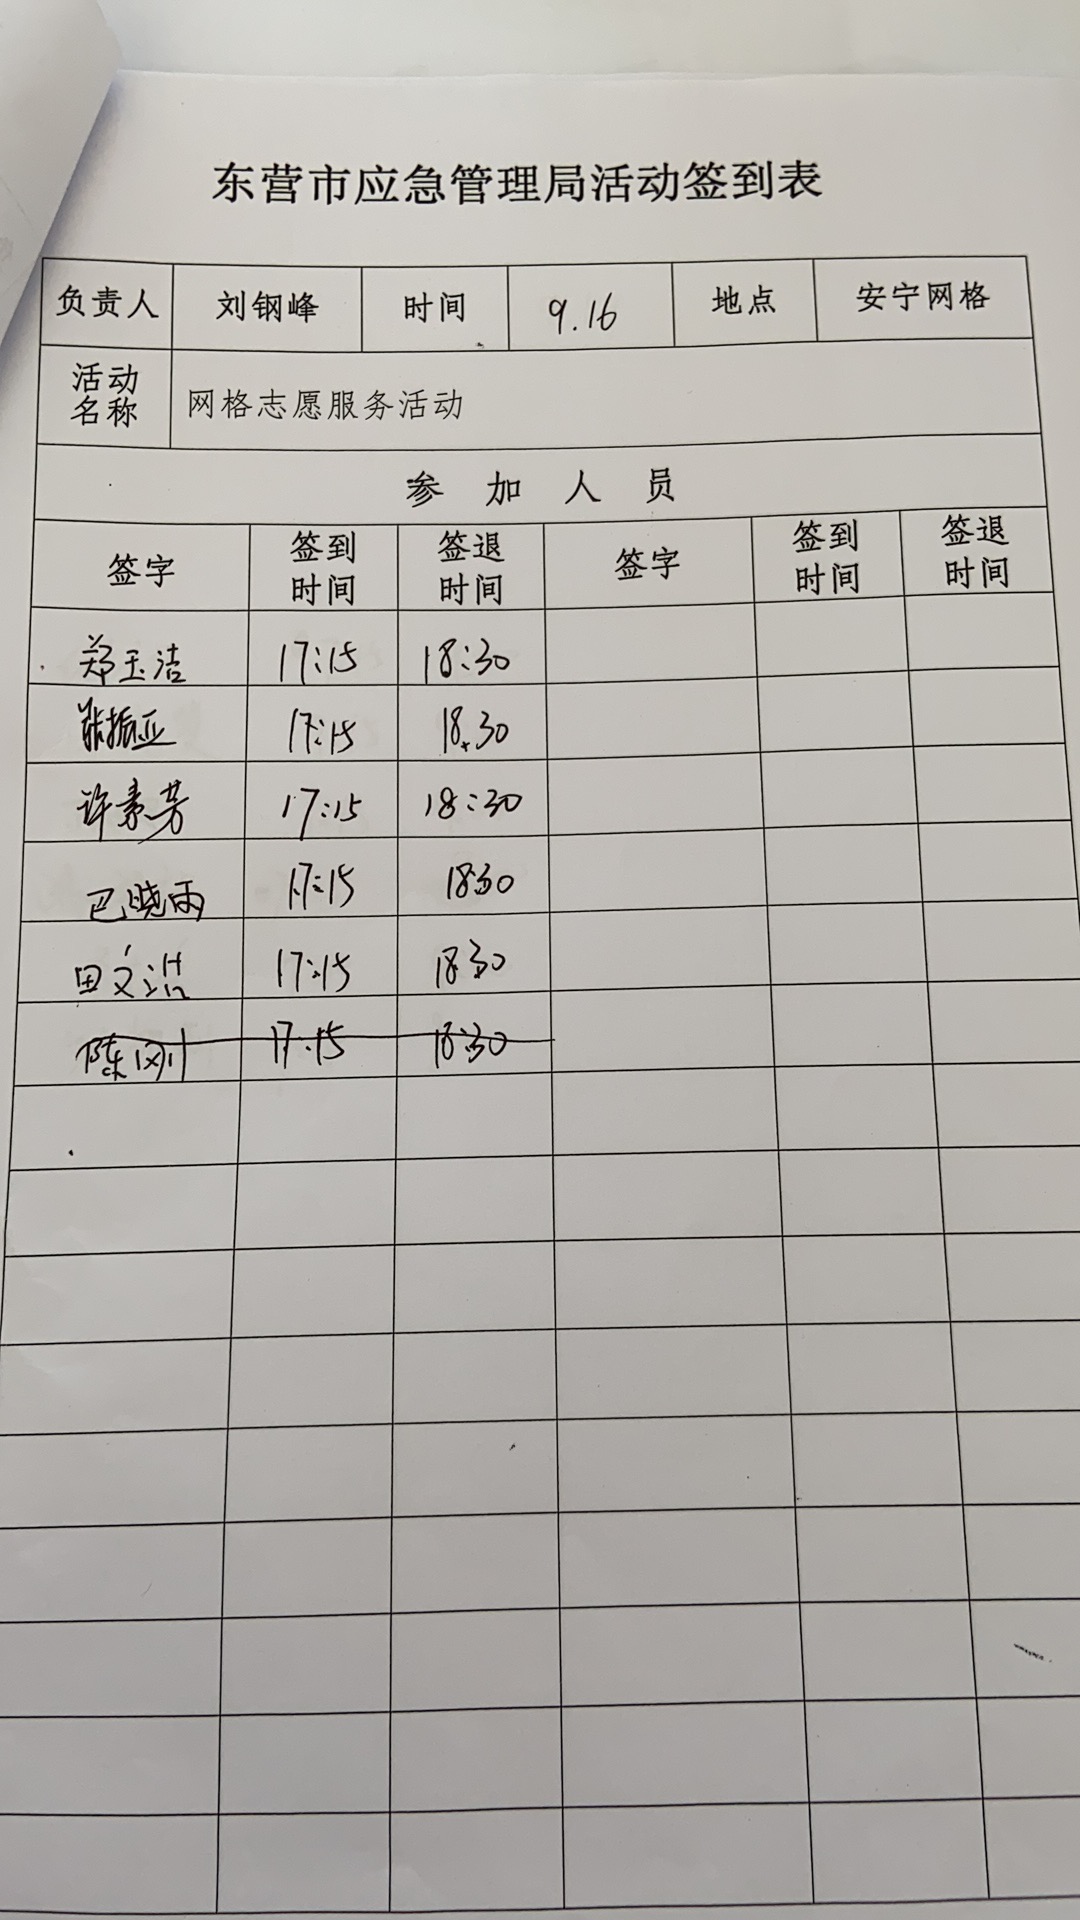 东营市应急管理局活动签到表
负责人 刘钢峰 时间 9.16 地点 安宁网格
活动名称 网格志愿服务活动
参加人员
签字 签到时间 签退时间 签字 签到时间 签退时间
郑玉洁 17:15 18:30
张振亚 17:15 18:30
许素芳 17:15 18:30
巴晓雨 17:15 18:30
田文洪 17:15 18:30
陈刚 17:15 18:30